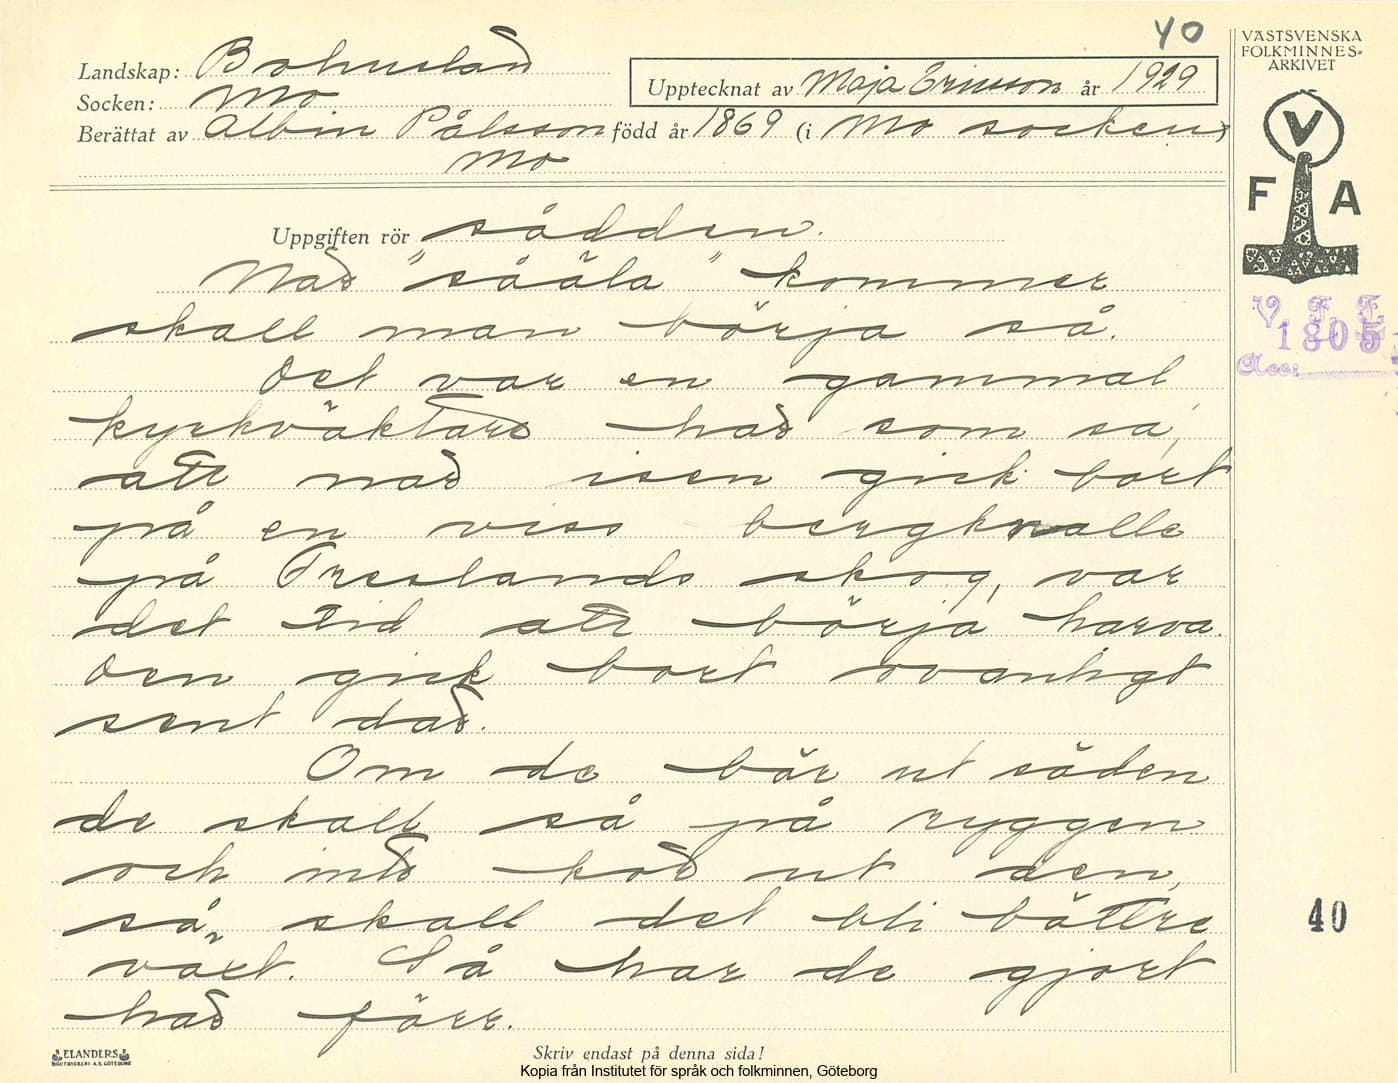 40
VÄSTSVENSKA
FOLKMINNES-
ARKIVET
Landskap: Bohuslän
Upptecknat av Maja Ericson år 1929
Socken: Mo
Berättat av Albin Pålsson född år 1869 (i Mo socken)
Mo
V
F A
Uppgiften rör sådden.
När "sååla" kommer
skall man börja så.
V. F. F.
1805
Acc:
Det var en gammal
kyrkväktare här som sa,
att när isen gick bort
på en viss bergknalle
på Freslands skog, var
det tid att börja harva.
Den gick bort ovanligt
sent där.
Om de bär ut säden
de skall så på ryggen
och inte kör ut den,
så skall det bli bättre
växt. Så har de gjort
här förr.
40
ELANDERS
BOKTRYCKERI A.B. GÖTEBORG
Skriv endast på denna sida!
Kopia från Institutet för språk och folkminnen, Göteborg